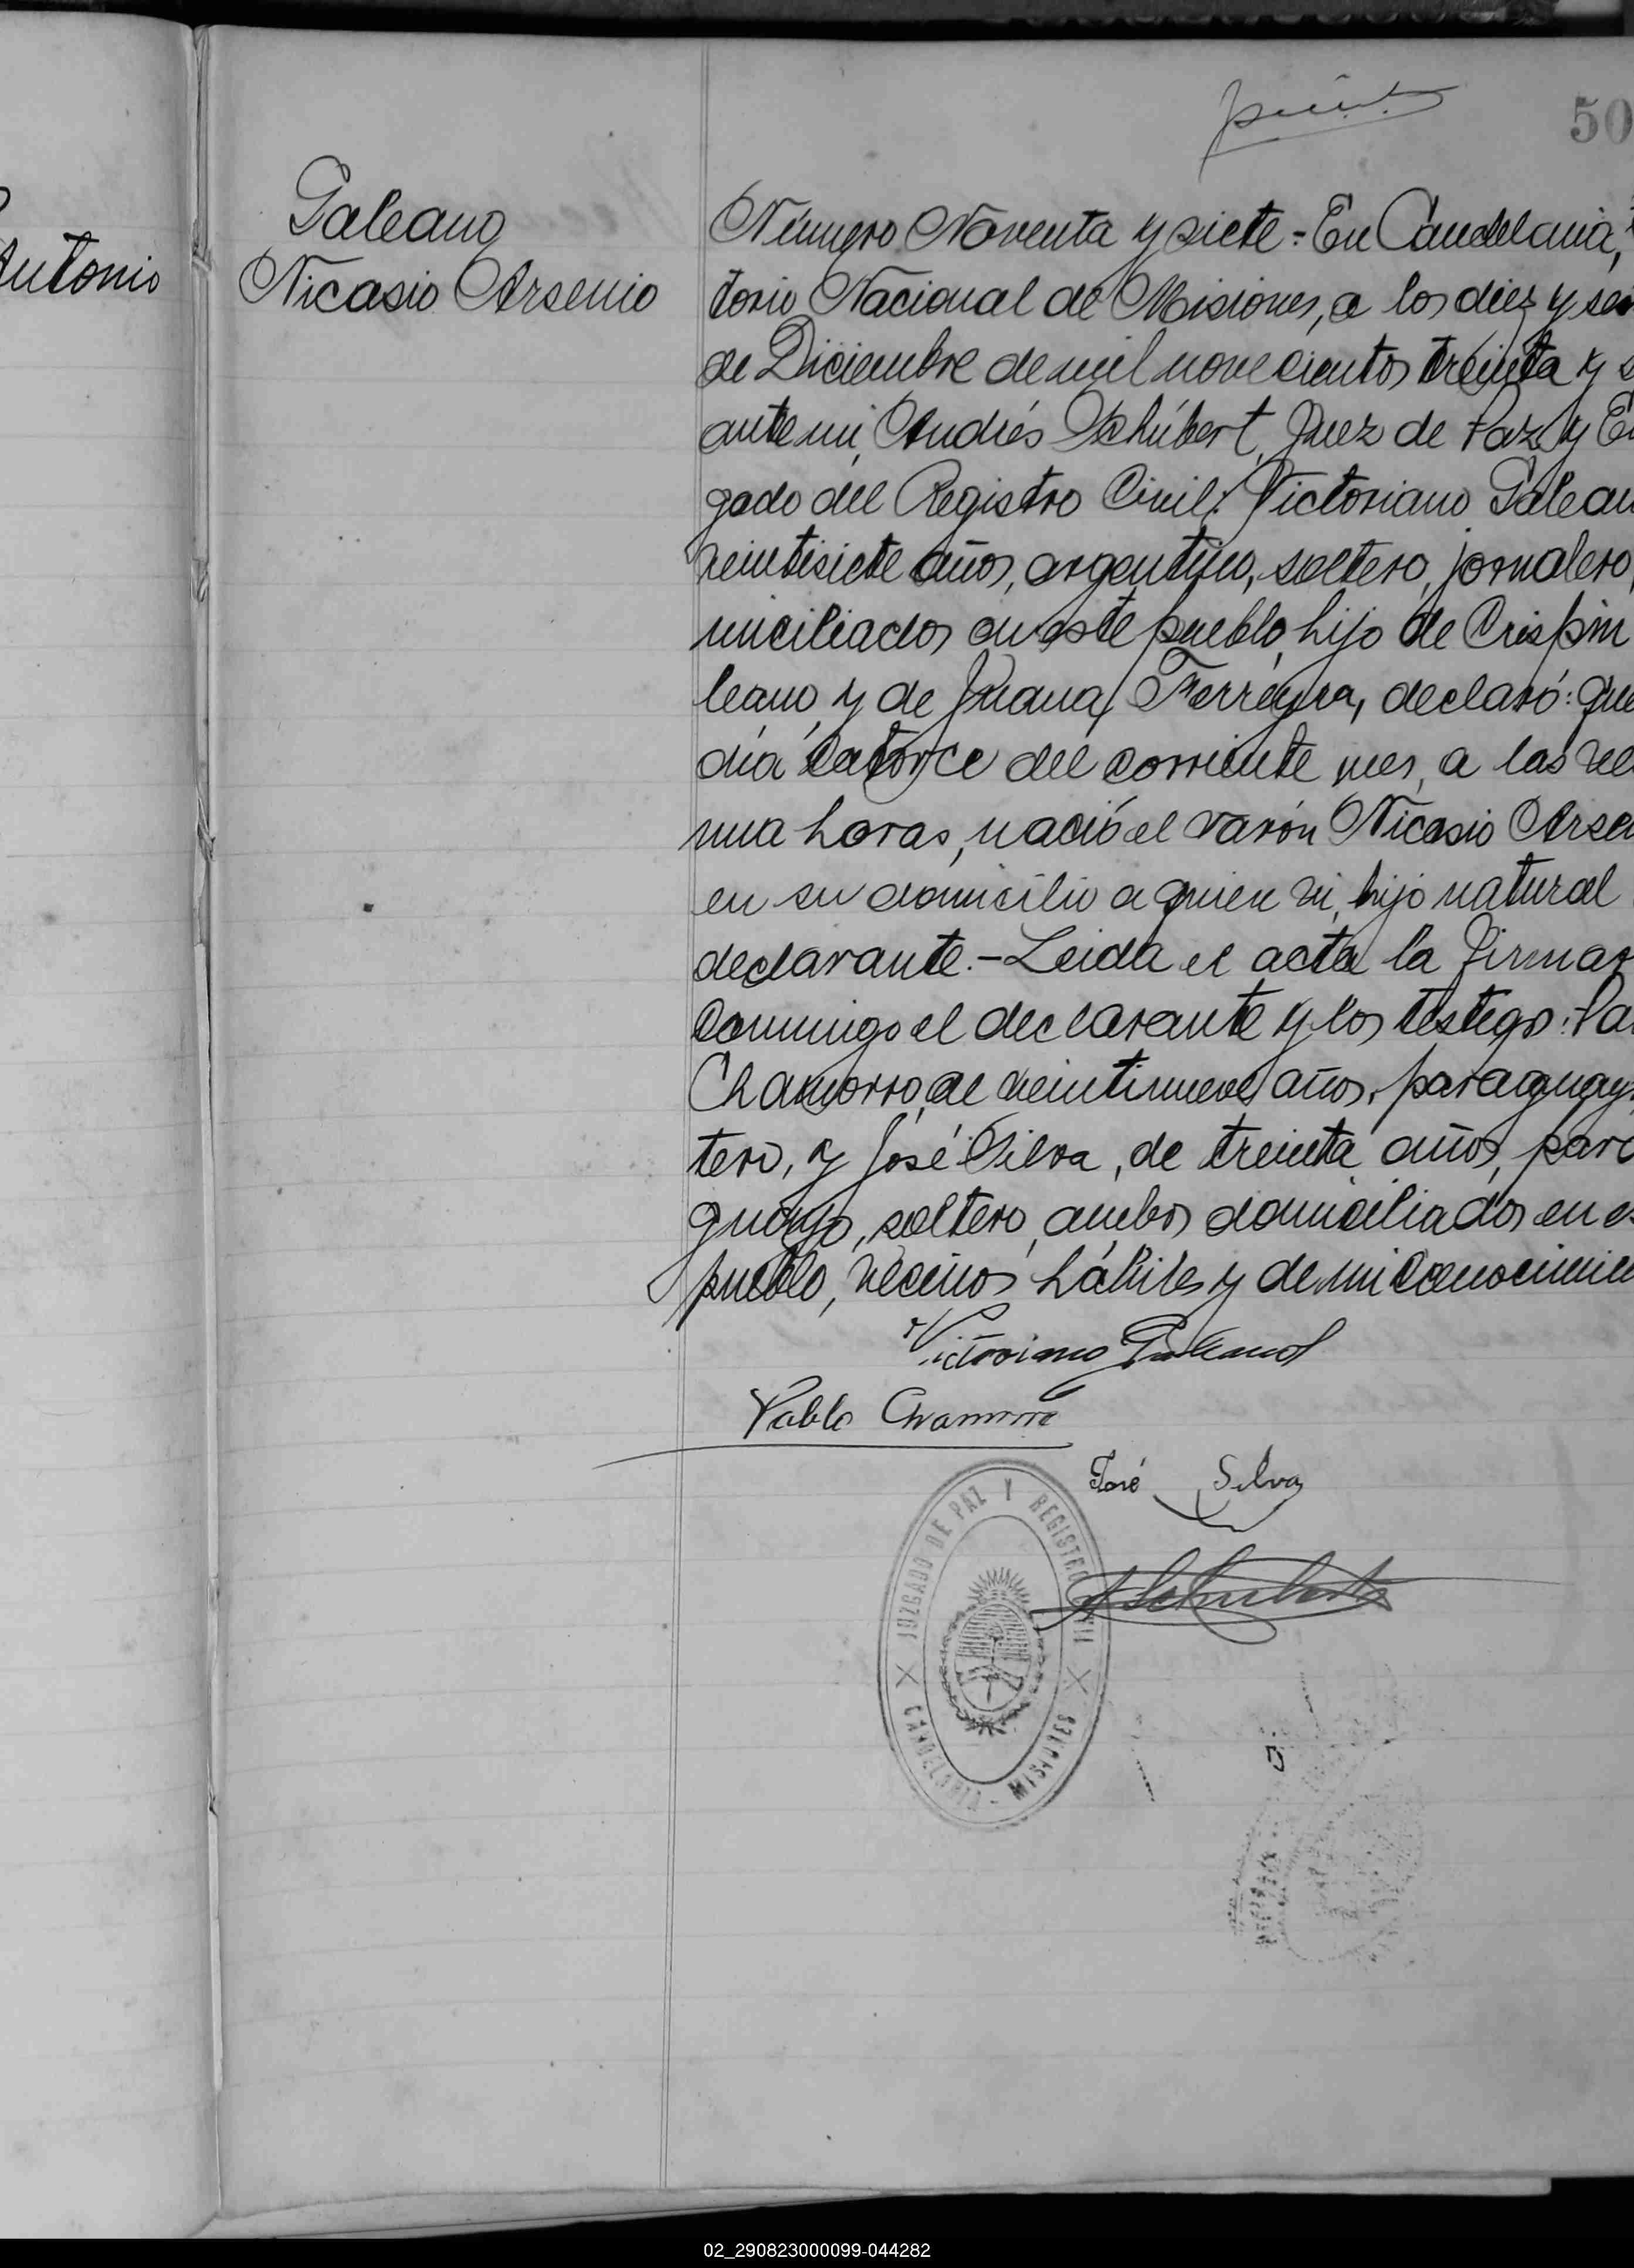 50
Antonio
Galeano
Nicasio Arsenio
Número Noventa y siete = En Candelaria,
torio Nacional de Misiones, a los diez y sei
de Diciembre de mil novecientos treinta y s
ante mi, Andrés Schúbert, Juez de Paz y En
gado del Registro Civil: Victoriano Galean
veintisiete años, argentino, soltero, jornalero,
miciliados en este pueblo, hijo de Crispin
leano y de Juana Ferreyra, declaró: que
día catorce del corriente mes, a las vei
una horas, nació el varón Nicasio Arsen
en su domicilio a quien vi, hijo natural
declarante.- Leida el acta la firmar
conmigo el declarante y los testigos: Pa
Chamorro, de veintinueve años, paraguay
tero, y José Silva, de treinta años, para
guayo, soltero, ambos domiciliados en es
pueblo, vecinos hábiles y de mi conocimien
Victoriano Galeano
Pablo Chamorro
José Silva
ASchubert
JUZGADO DE PAZ Y REGISTRO CIVIL
CANDELARIA - MISIONES
02_290823000099-044282